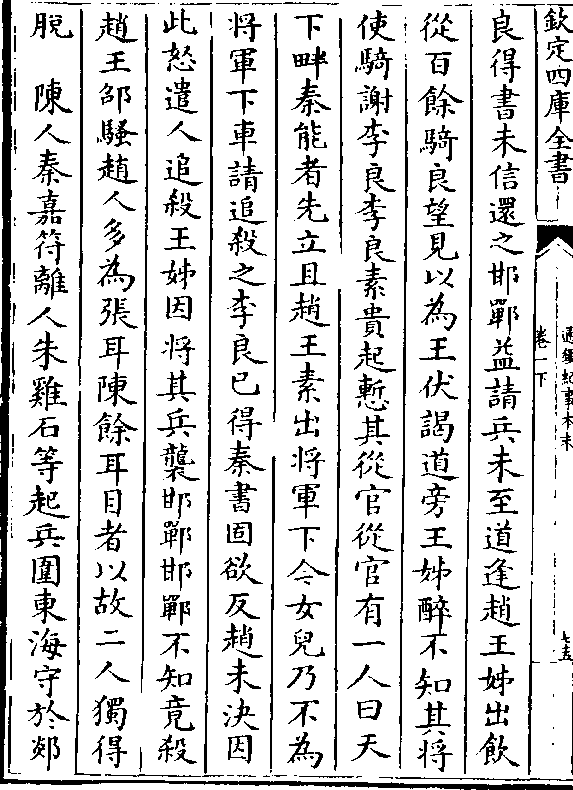 欽定四庫全書
通鑑紀事本末
卷一下
七五
良得書未信還之邯鄲益請兵未至道逢趙王姊出飲
從百餘騎良望見以為王伏謁道旁王姊醉不知其將
使騎謝李良李良素貴起慙其從官從官有一人曰天
下畔秦能者先立且趙王素出將軍下今女兒乃不為
將軍下車請追殺之李良已得秦書固欲反趙未決因
此怒遣人追殺王姊因將其兵襲邯鄲邯鄲不知竟殺
趙王邵騷趙人多為張耳陳餘耳目者以故二人獨得
脫　陳人秦嘉符離人朱雞石等起兵圍東海守於郯